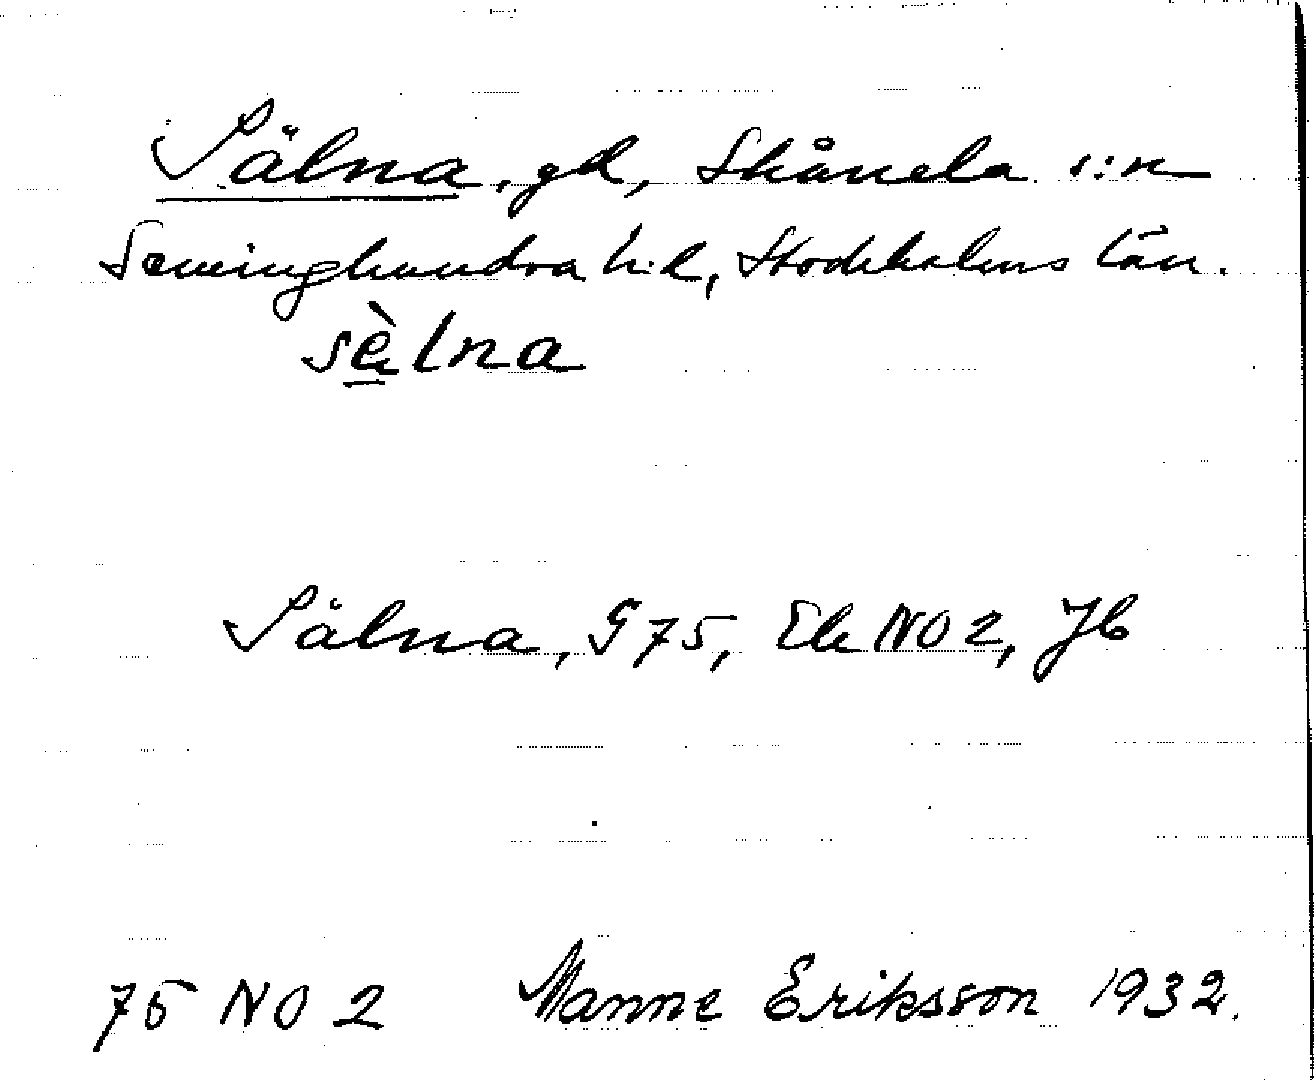 Sälna, gd, Skånela s:n
Seminghundra h:d, Stockholms län.
sèlna
Sälna, G 75, Ek NO 2, Jb
75 NO 2 Manne Eriksson 1932.